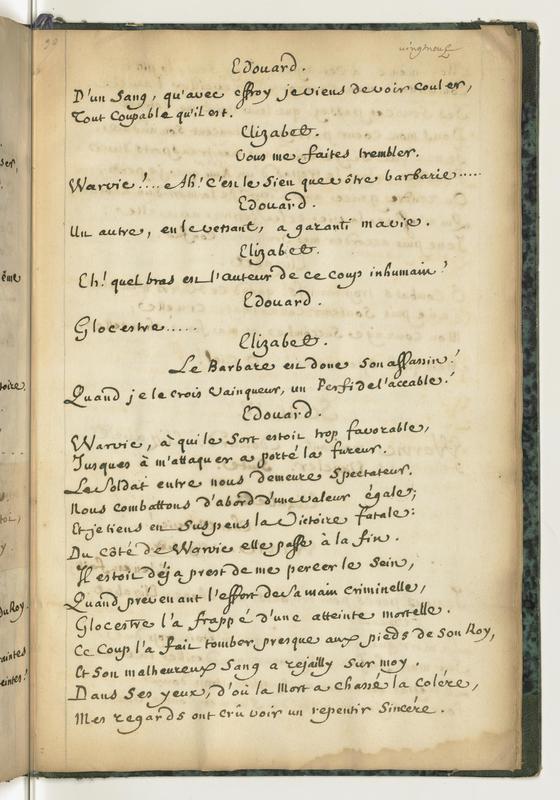 30
vingtneuf
Edouard.
D'un Sang, qu'avec effroy je viens de voir couler,
Tout Coupable qu'il est.
Elizabet.
Vous me faites trembler.
Warvic!... Ah! C'en le Sien que vôtre barbarie.....
Edouard.
Un autre, en le versant, a garanti ma vie.
Elizabet.
Eh! quel bras est l'auteur de ce coup inhumain?
Edouard.
Glocestre.....
Elizabet.
Le Barbare est donc Son assassin!
Quand je le crois Vainqueur, un Perfide l'accable!
Edouard.
Warvic, à qui le Sort estoit trop favorable,
Jusques à m'attaquer a porté la fureur.
Le Soldat entre nous demeure Spectateur.
Nous combattons d'abord d'une valeur égale;
Et je tiens en Suspens la Victoire fatale:
Du côté de Warvic elle passe à la fin.
Il estoit déja prest de me percer le Sein,
Quand prévenant l'effort de Sa main criminelle,
Glocestre l'a frappé d'une atteinte mortelle.
Ce Coup l'a fait tomber presque aux pieds de Son Roy,
Et Son malheureux Sang a rejailly Sur moy.
Dans Ses yeux, d'où la Mort a chassé la Colére,
Mes regards ont crû voir un repentir Sincére.
ser,
ême
toire.
toi,
y.
du Roy.
raintes
eintes!